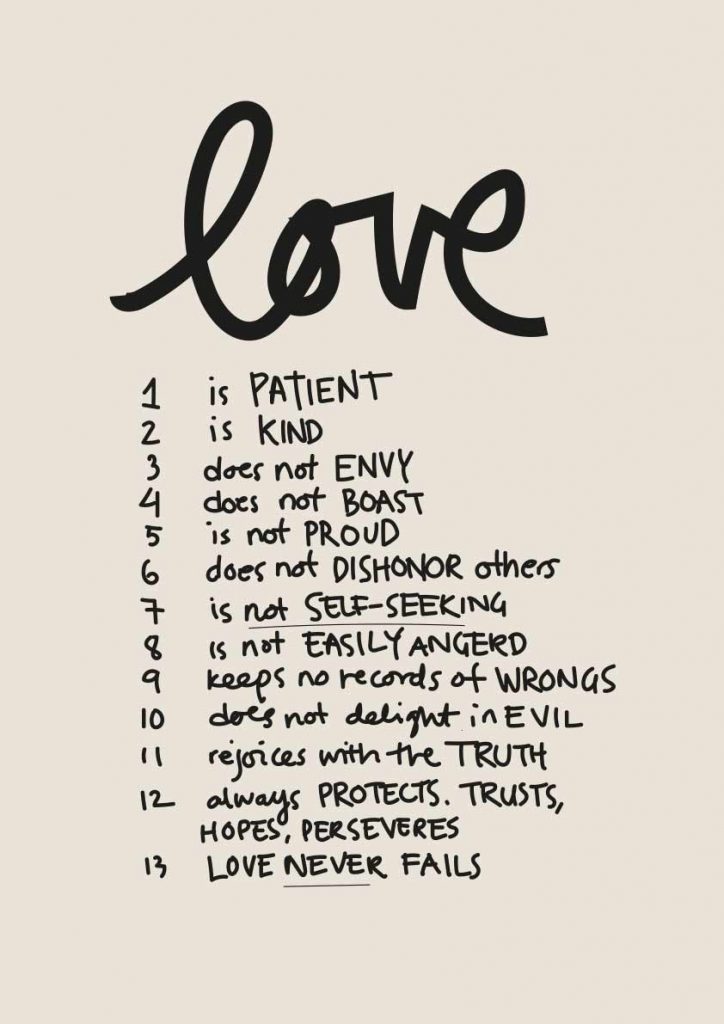 love
1 is PATIENT
2 is KIND
3 does not ENVY
4 does not BOAST
5 is not PROUD
6 does not DISHONOR others
7 is not SELF-SEEKING
8 is not EASILY ANGERD
9 keeps no records of WRONGS
10 does not delight in EVIL
11 rejoices with the TRUTH
12 always PROTECTS. TRUSTS,
HOPES, PERSEVERES
13 LOVE NEVER FAILS